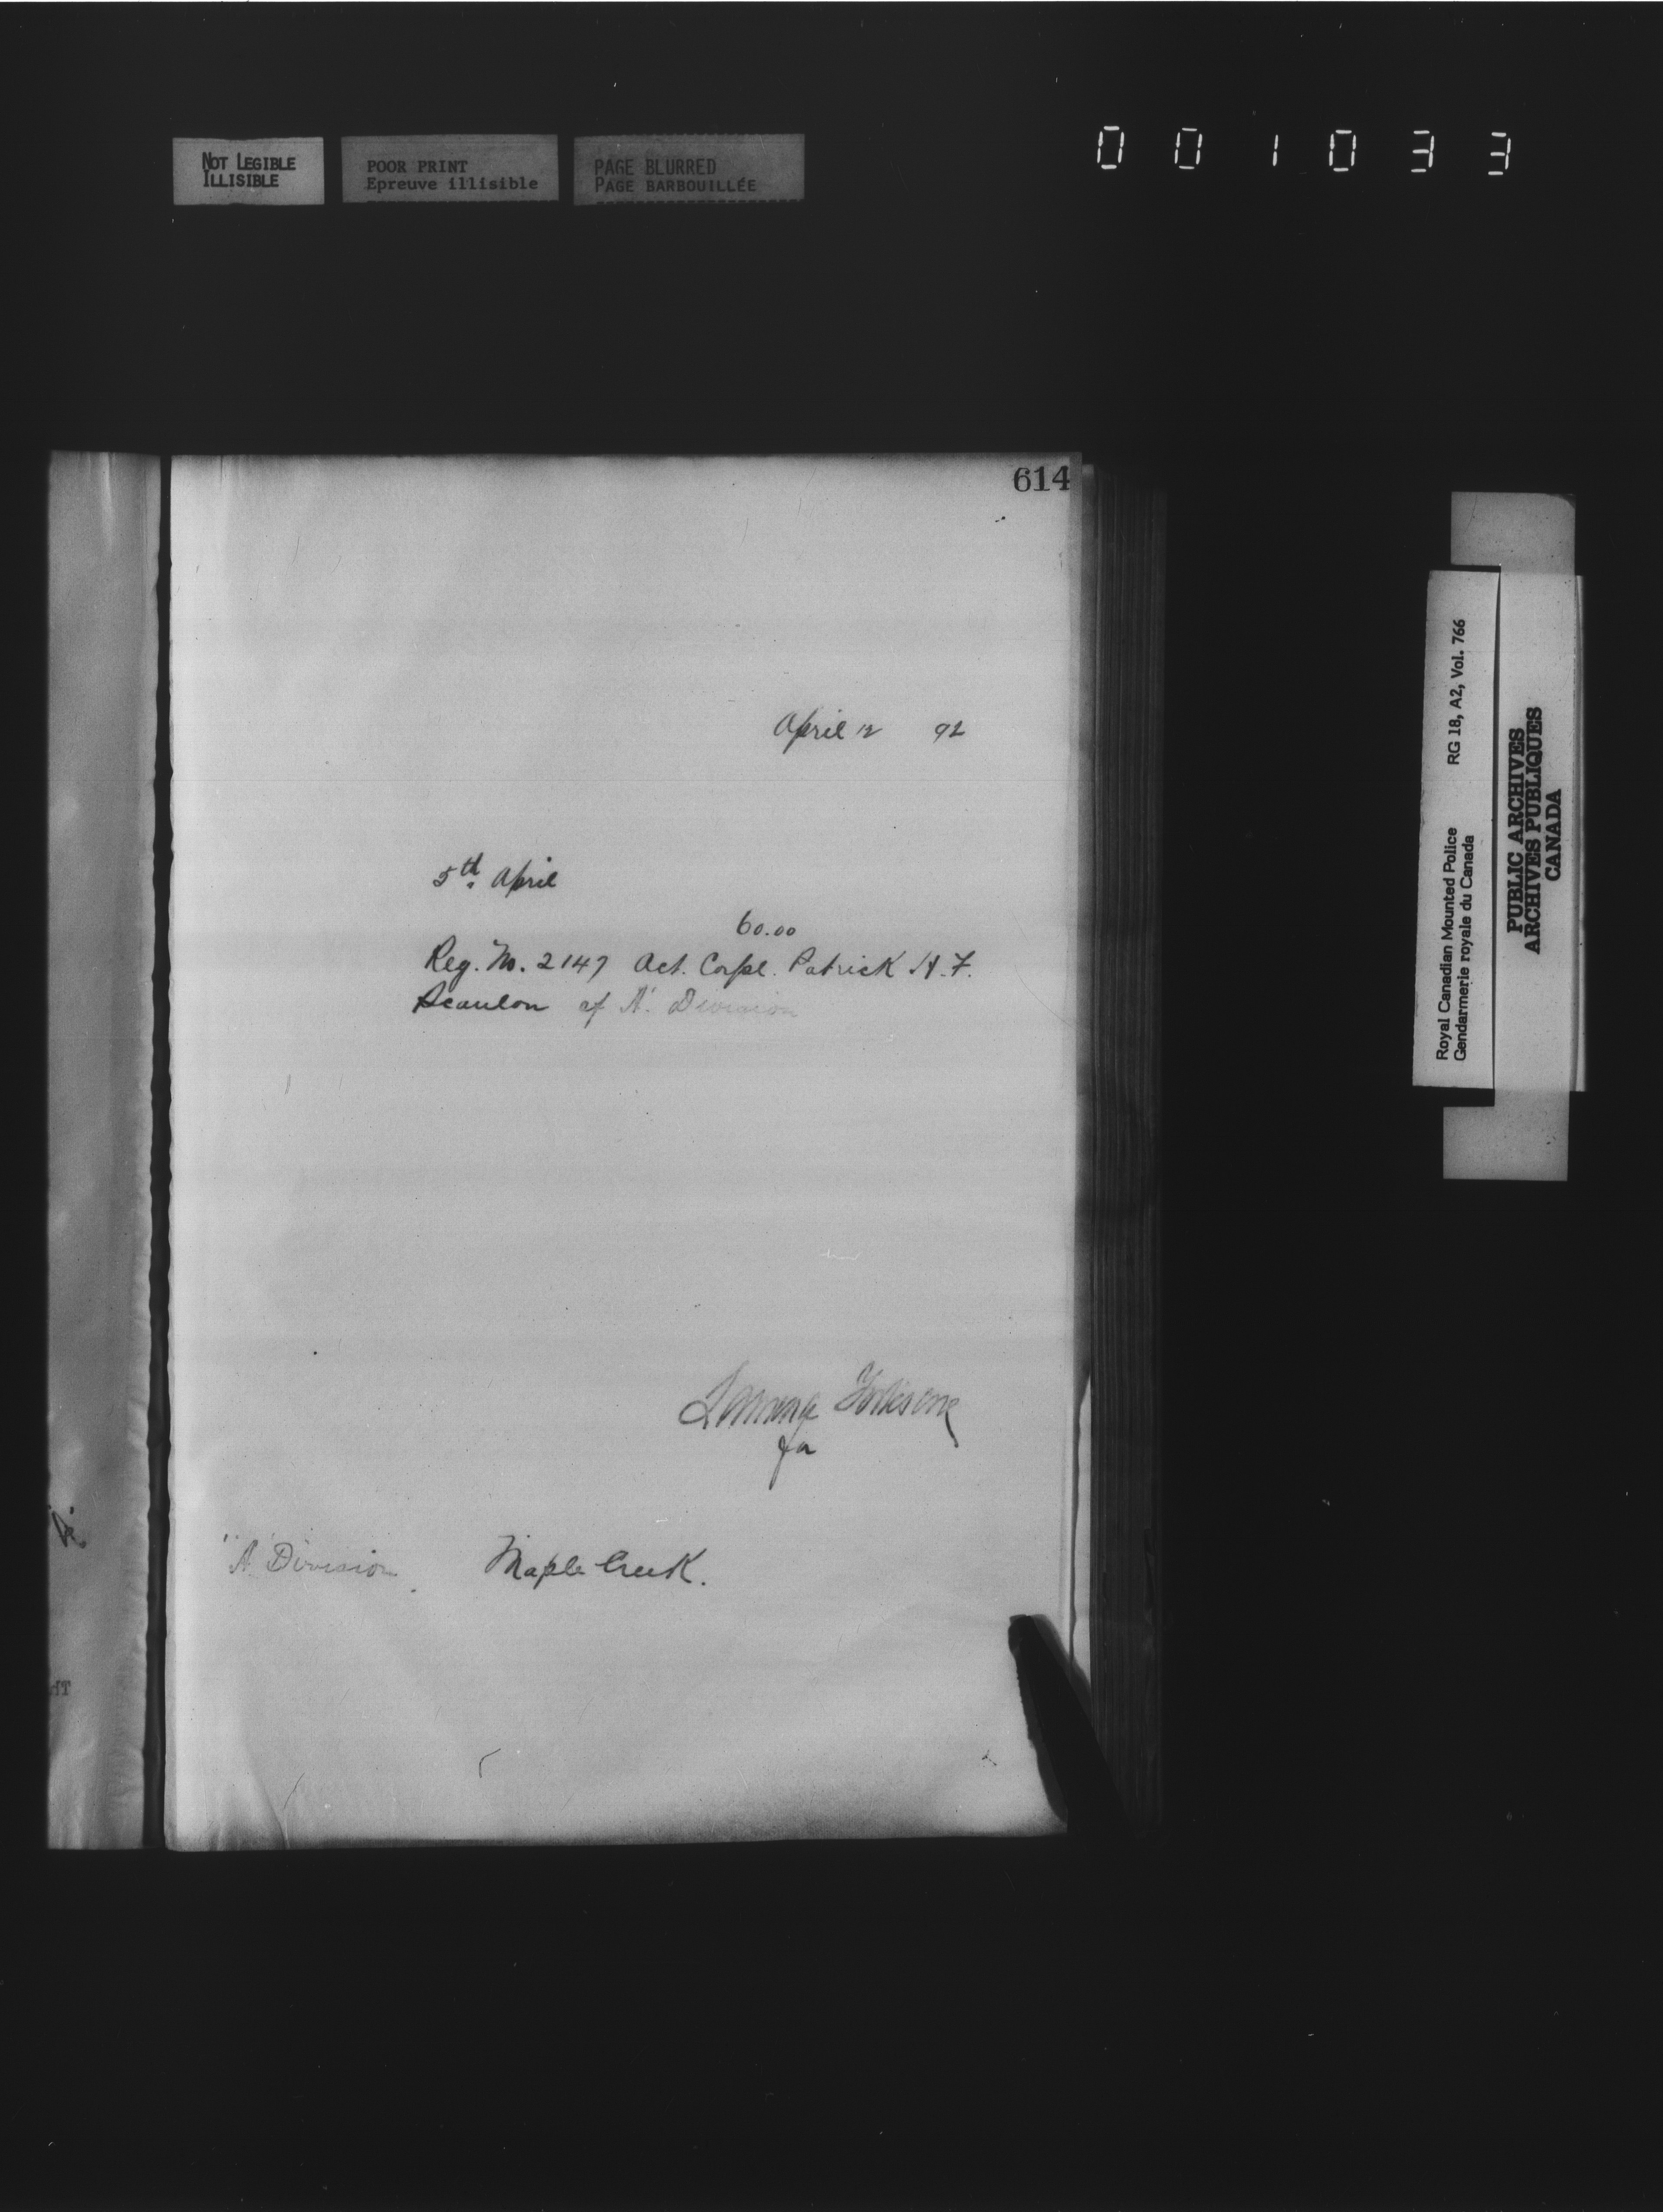 NOT LEGIBLE
ILLISIBLE
POOR PRINT
Epreuve illisible
PAGE BLURRED
PAGE BARBOUILLÉE
001033
614
April 12 92
5th April
60.00
Reg. No. 2147 Act. Corpl. Patrick H. F.
Scanlon of 'A' Division
'A' Division Maple Creek.
Royal Canadian Mounted Police RG 18, A2, Vol. 766
Gendarmerie royale du Canada
PUBLIC ARCHIVES
ARCHIVES PUBLIQUES
CANADA